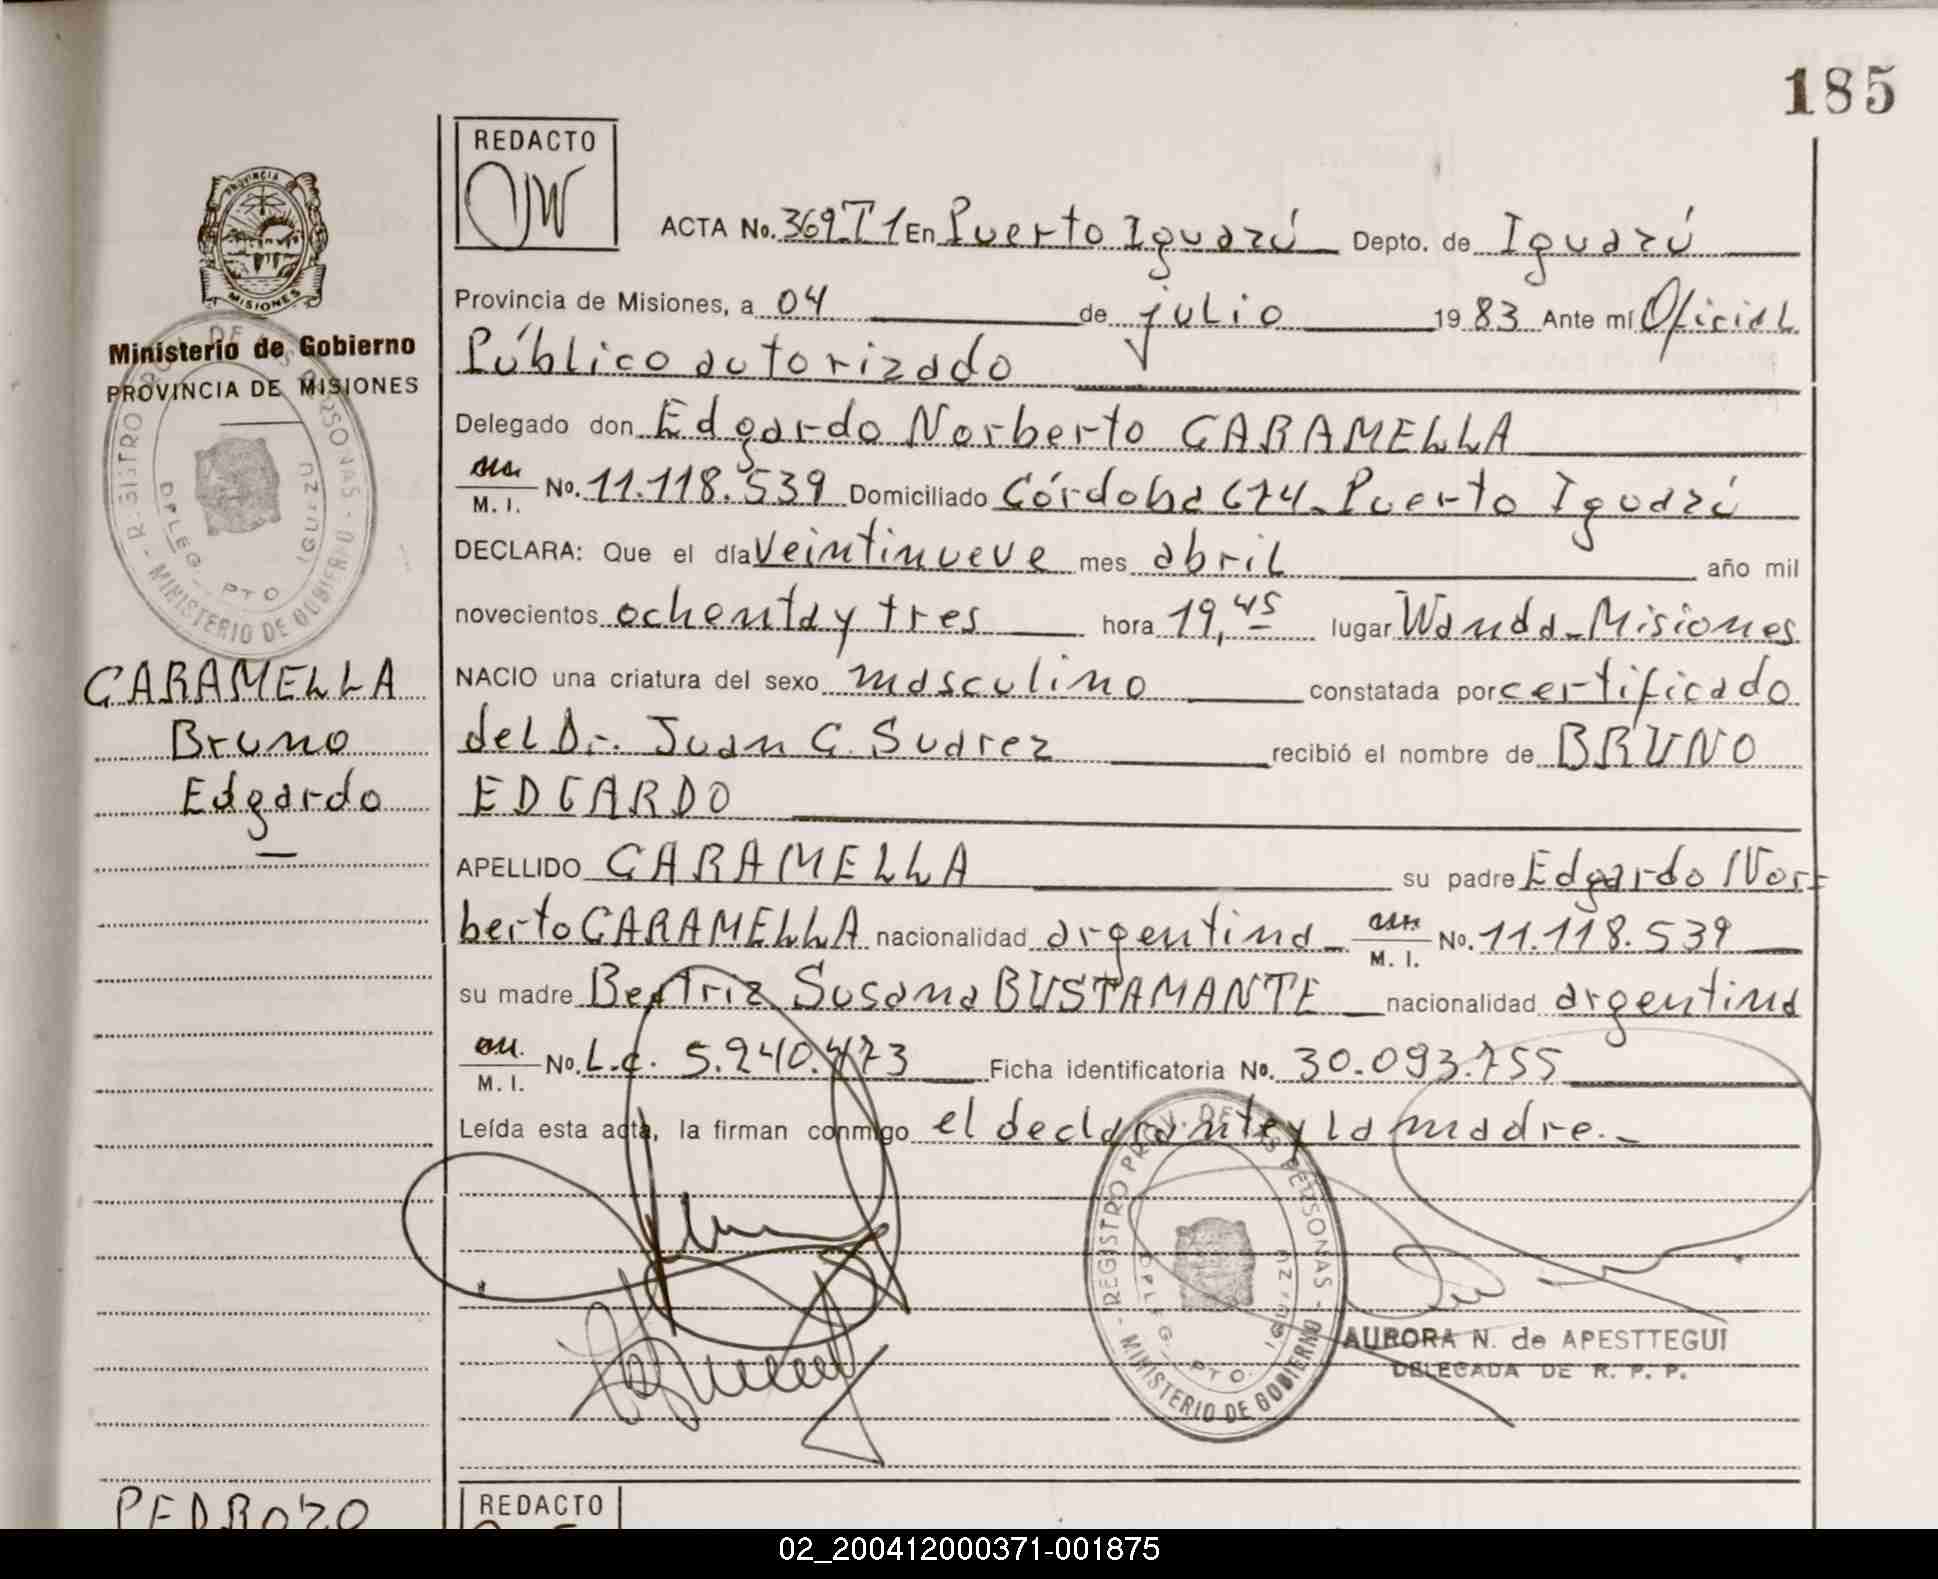 185
REDACTO
PROVINCIA
MISIONES
Ministerio de Gobierno
PROVINCIA DE MISIONES
ACTA No. 369 T1 En Puerto Iguazú Depto. de Iguazú
Provincia de Misiones, a 04 de julio 1983 Ante mí Oficial
Público autorizado
Delegado don Edgardo Norberto CARAMELLA
M. I. No. 11.118.539 Domiciliado Córdoba 674 - Puerto Iguazú
DECLARA: Que el día veintinueve mes abril año mil
novecientos ochenta y tres hora 19,45 lugar Wanda - Misiones
CARAMELLA
Bruno
Edgardo
NACIO una criatura del sexo masculino constatada por certificado
del Dr. Juan C. Suarez recibió el nombre de BRUNO
EDGARDO
APELLIDO CARAMELLA su padre Edgardo Nor-
berto CARAMELLA nacionalidad argentina - M. I. No. 11.118.539
su madre Beatriz Susana BUSTAMANTE nacionalidad argentina
M. I. No. L.C. 5.240.473 Ficha identificatoria No. 30.093.755
Leída esta acta, la firman conmigo el declarante y la madre.-
REGISTRO PROV. DE LAS PERSONAS - MINISTERIO DE GOBIERNO -
DELEG. PTO. IGUAZU
AURORA N. de APESTTEGUI
DELEGADA DE R. P. P.
PEDROZO
REDACTO
02_200412000371-001875